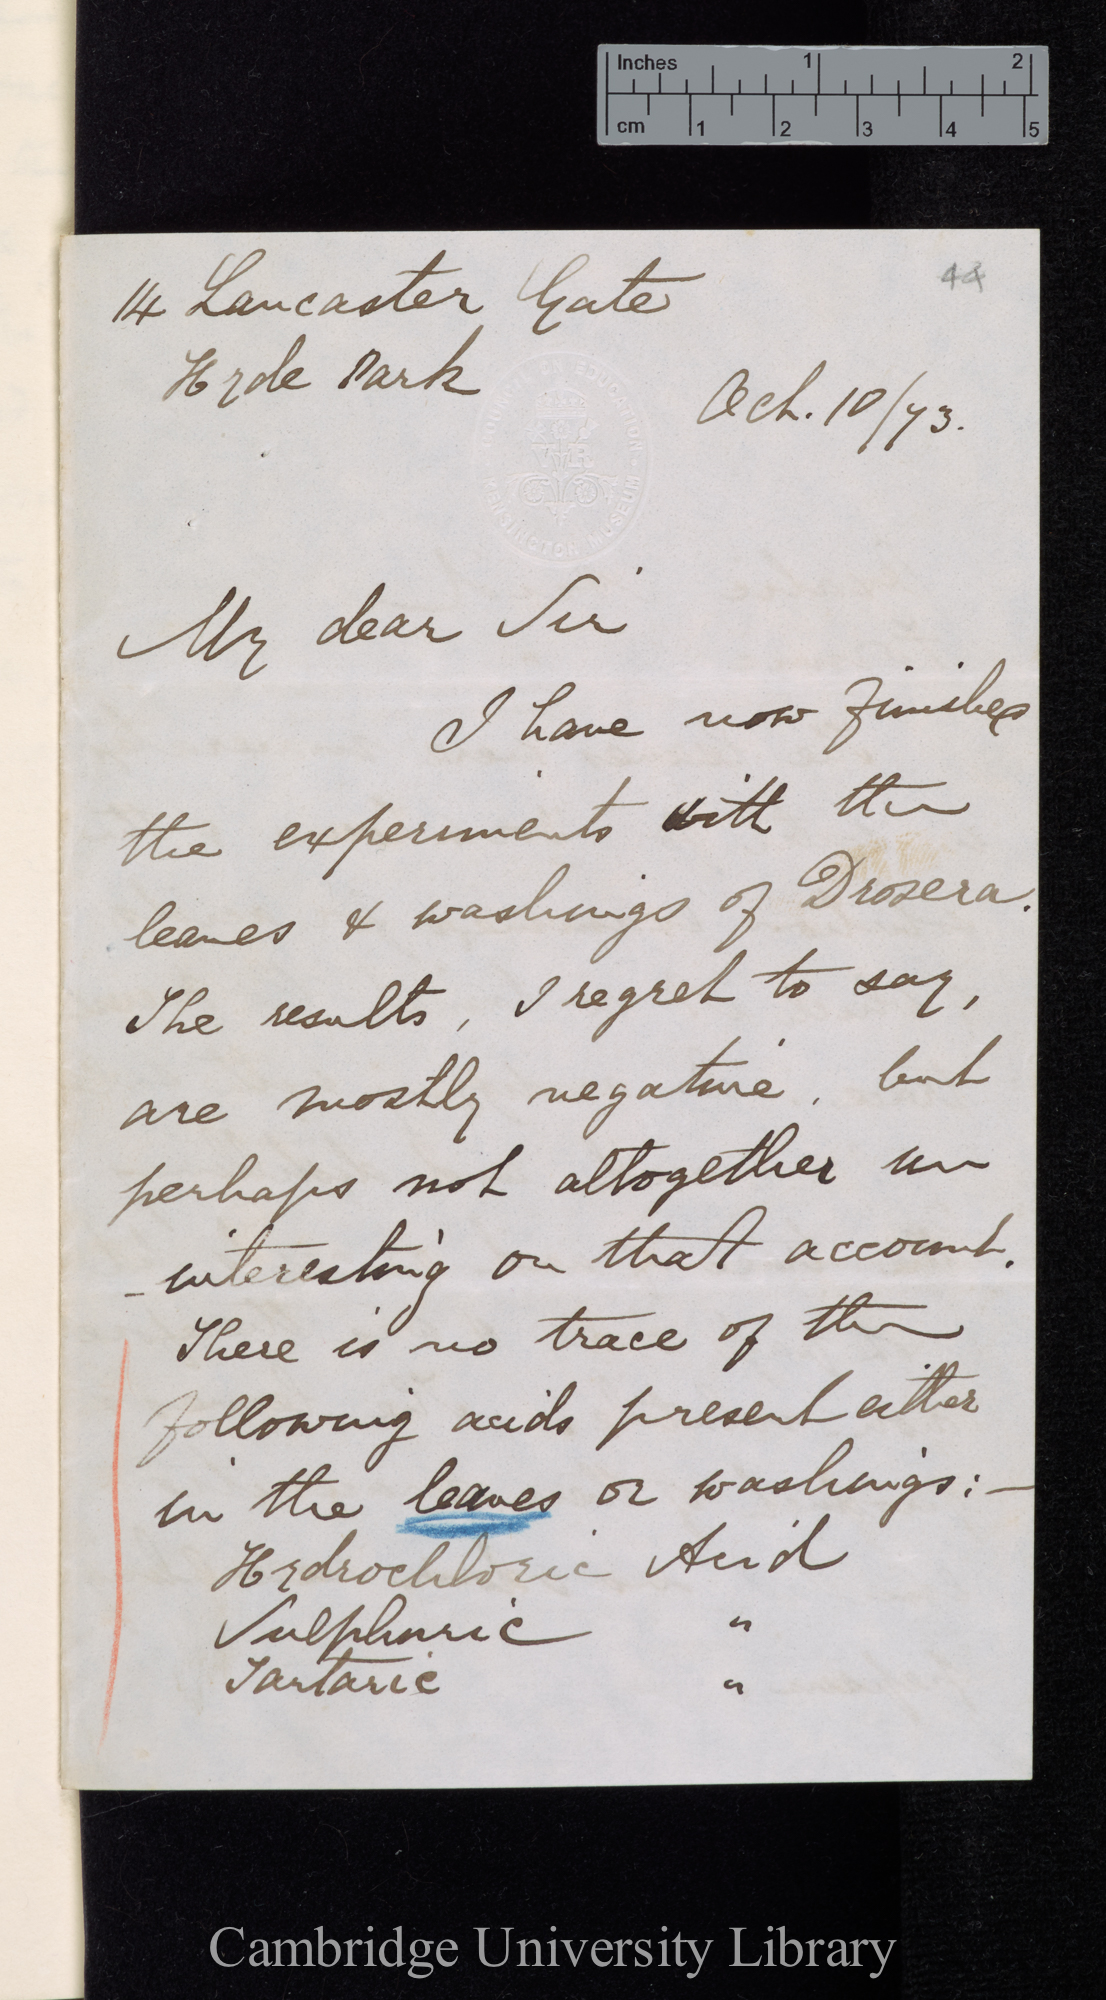 Inches 1 2
cm 1 2 3 4 5
44
14 Lancaster Gate
Hyde Park
Oct. 10/73.
COUNCIL ON EDUCATION
KENSINGTON MUSEUM
My dear Sir
I have now finished
the experiments with the
leaves & washings of Drosera.
The results, I regret to say,
are mostly negative, but
perhaps not altogether un
-interesting on that account.
There is no trace of the
following acids present either
in the leaves or washings:—
Hydrochloric Acid
Sulphuric "
Tartaric "
Cambridge University Library